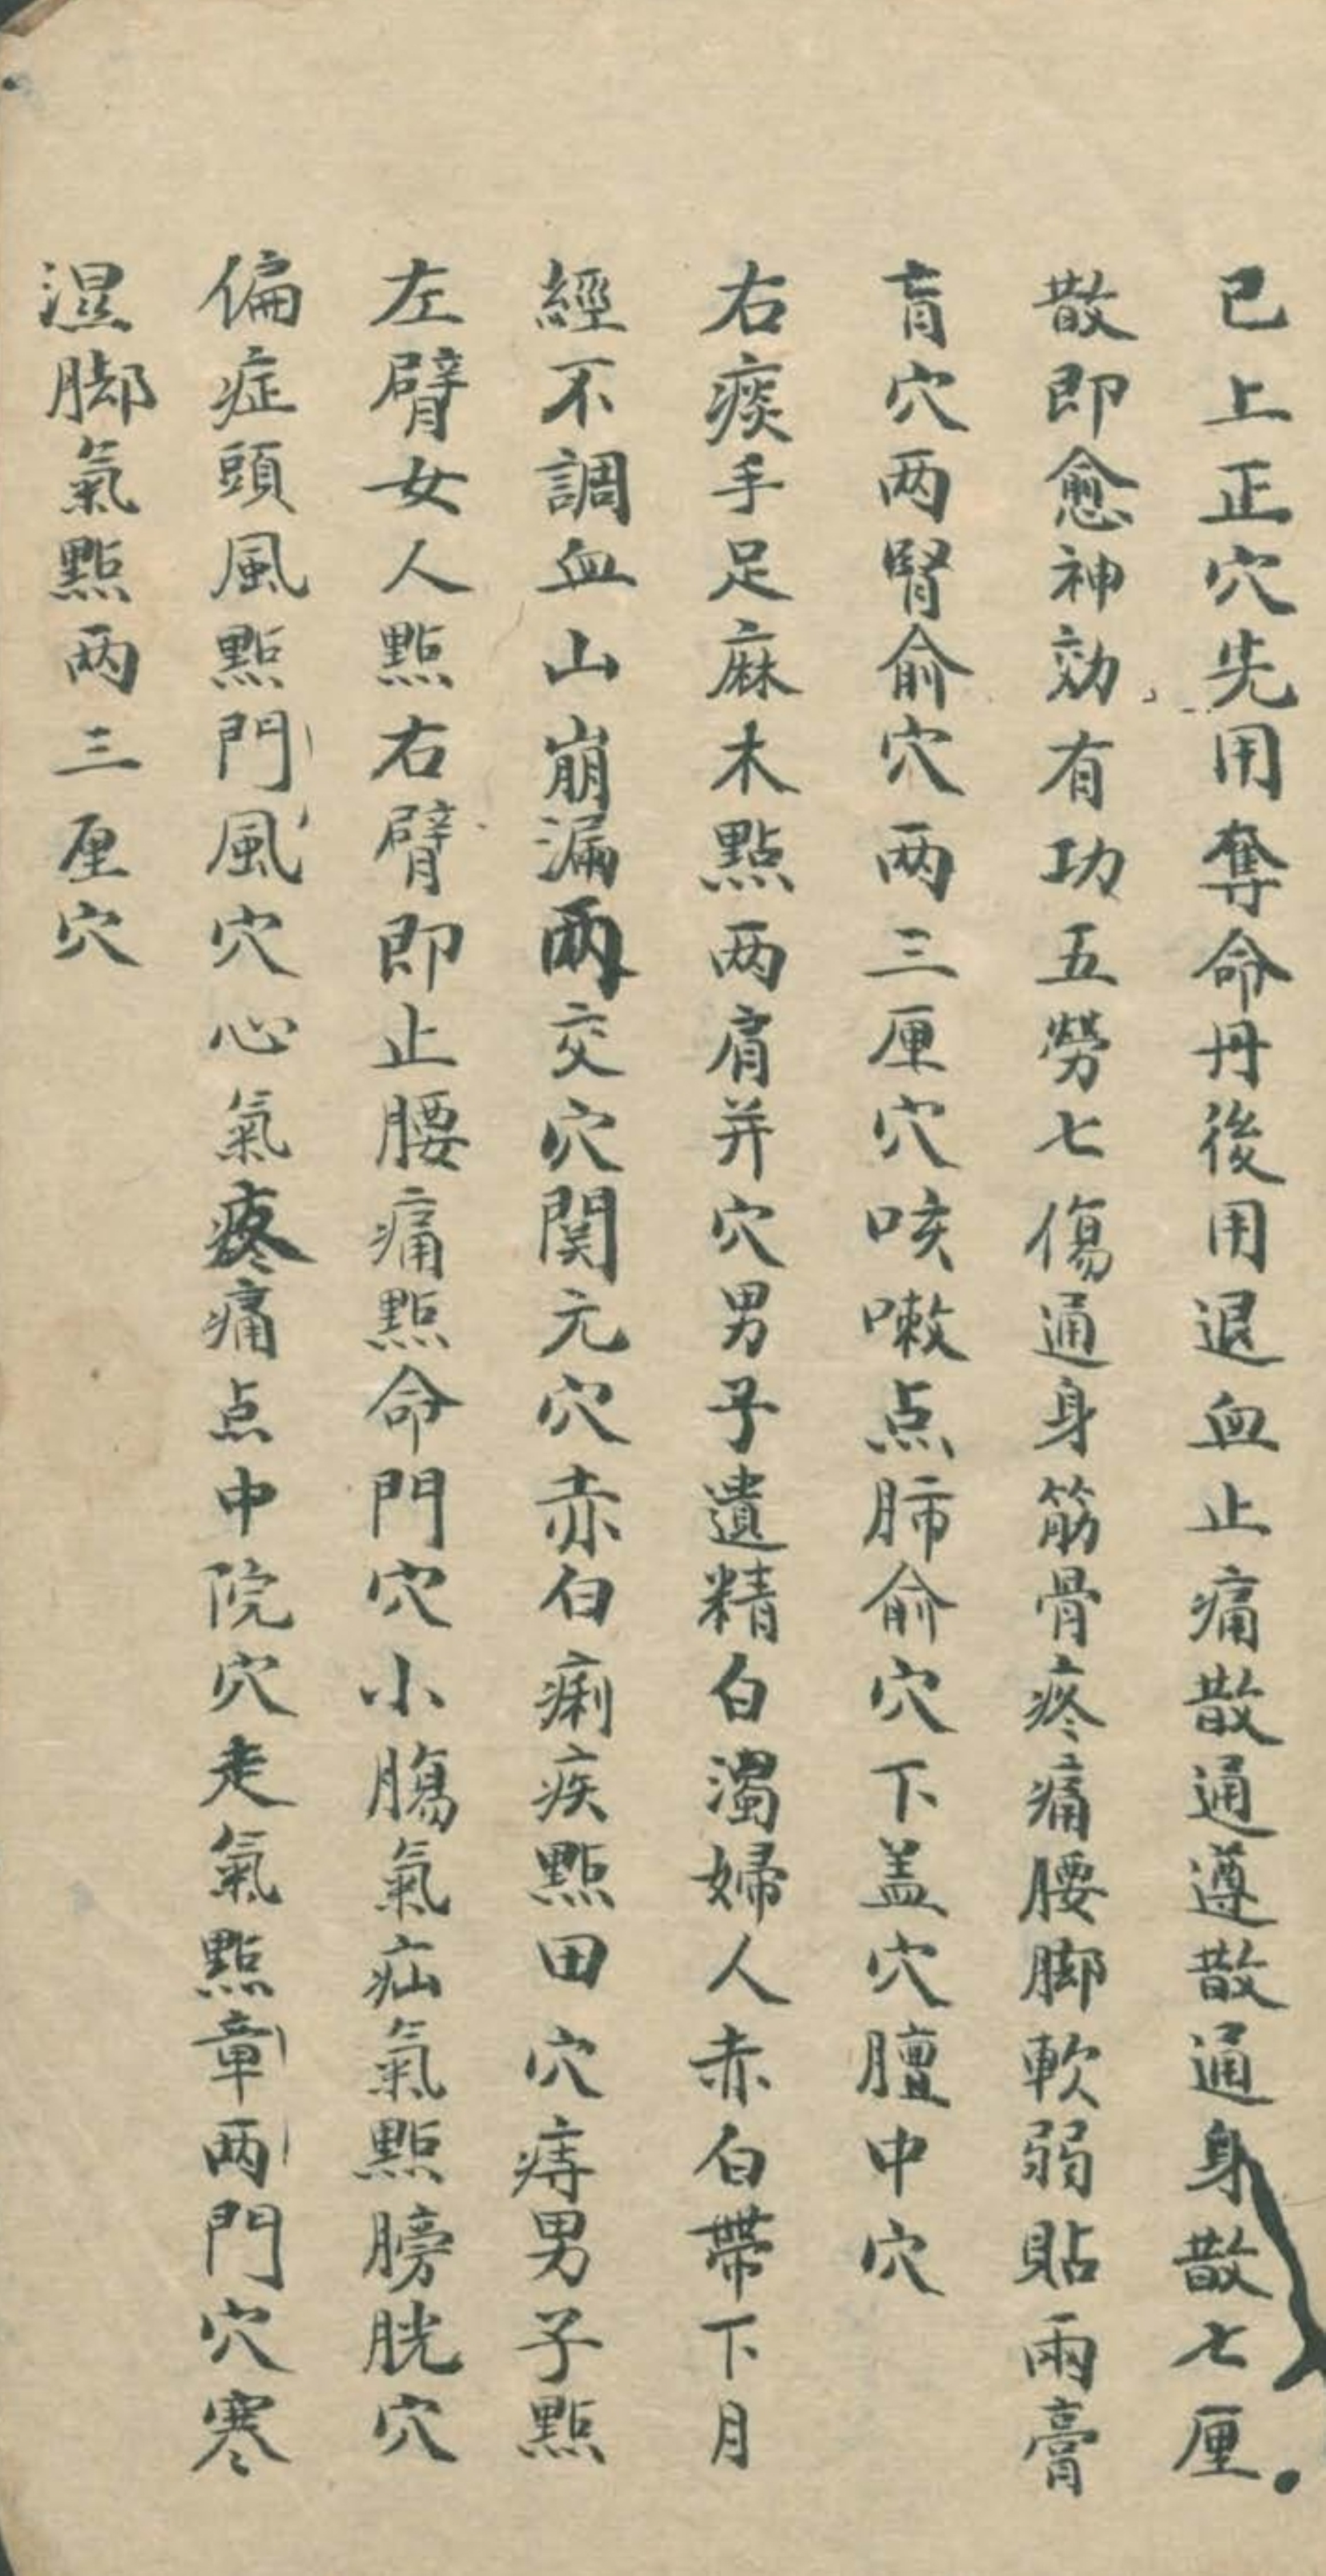 已上正穴先用奪命丹後用退血止痛散通遵散通身散七厘
散即愈神効有功五勞七傷通身筋骨疼痛腰脚軟弱貼兩膏
肓穴两腎俞穴两三厘穴咳嗽点肺俞穴下盖穴膻中穴
右痰手足麻木點两肩并穴男子遺精白濁婦人赤白帶下月
經不調血山崩漏兩交穴関元穴赤白痢疾點田穴痔男子點
左臂女人點右臂即止腰痛點命門穴小腸氣疝氣點膀胱穴
偏症頭風點門風穴心氣疼痛点中院穴走氣點章两門穴寒
湿脚氣點两三厘穴